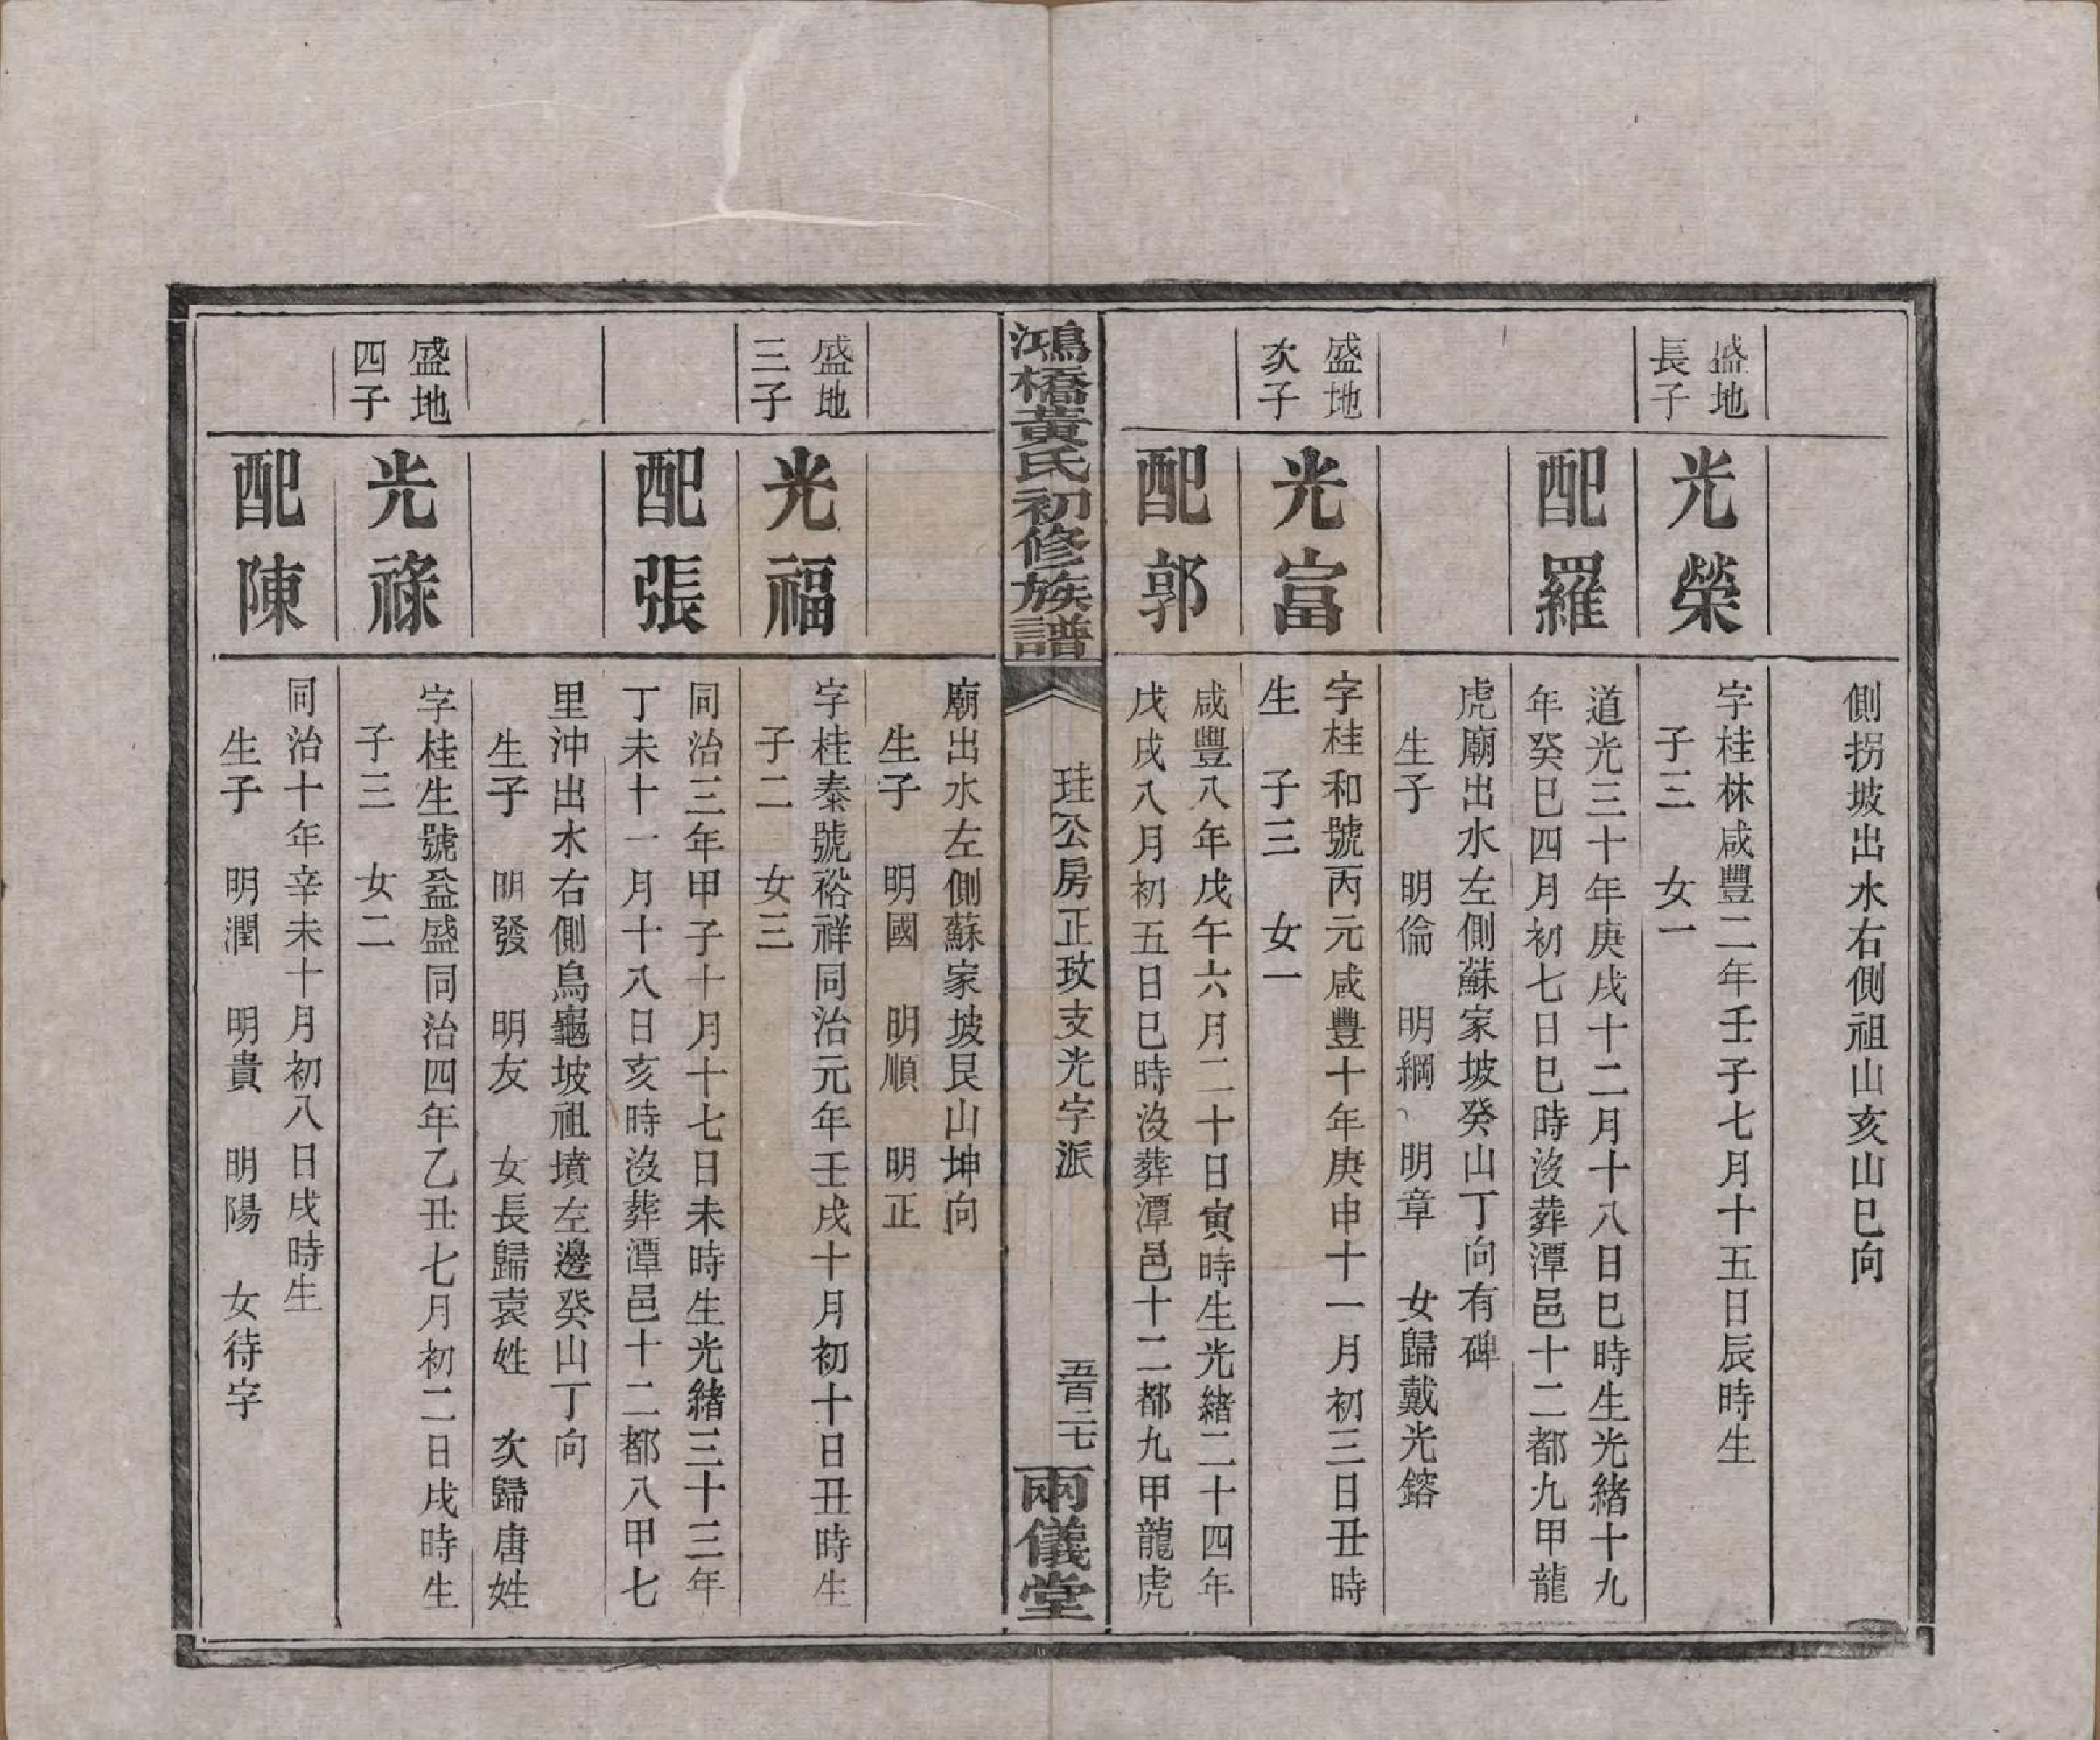 側拐坡出水右側祖山亥山巳向
盛地
長子
光榮
字桂林咸豐二年壬子七月十五日辰時生
子三　女一
配羅
道光三十年庚戌十二月十八日巳時生光緒十九
年癸巳四月初七日巳時沒葬潭邑十二都九甲龍
虎廟出水左側蘇家坡癸山丁向有碑
生子　明倫　明綱　明章　女歸戴光鎔
盛地
次子
光富
字桂和號丙元咸豐十年庚申十一月初三日丑時
生　子三　女一
配郭
咸豐八年戊午六月二十日寅時生光緒二十四年
戊戌八月初五日巳時沒葬潭邑十二都九甲龍虎
鴻橋黃氏初修族譜
珪公房正玫支光字派
五百二七
兩儀堂
廟出水左側蘇家坡艮山坤向
生子　明國　明順　明正
盛地
三子
光福
字桂泰號裕祥同治元年壬戌十月初十日丑時生
子二　女三
配張
同治三年甲子十月十七日未時生光緒三十三年
丁未十一月十八日亥時沒葬潭邑十二都八甲七
里沖出水右側烏龜坡祖墳左邊癸山丁向
生子　明發　明友　女長歸袁姓　次歸唐姓
盛地
四子
光祿
字桂生號益盛同治四年乙丑七月初二日戌時生
子三　女二
配陳
同治十年辛未十月初八日戌時生
生子　明潤　明貴　明陽　女待字